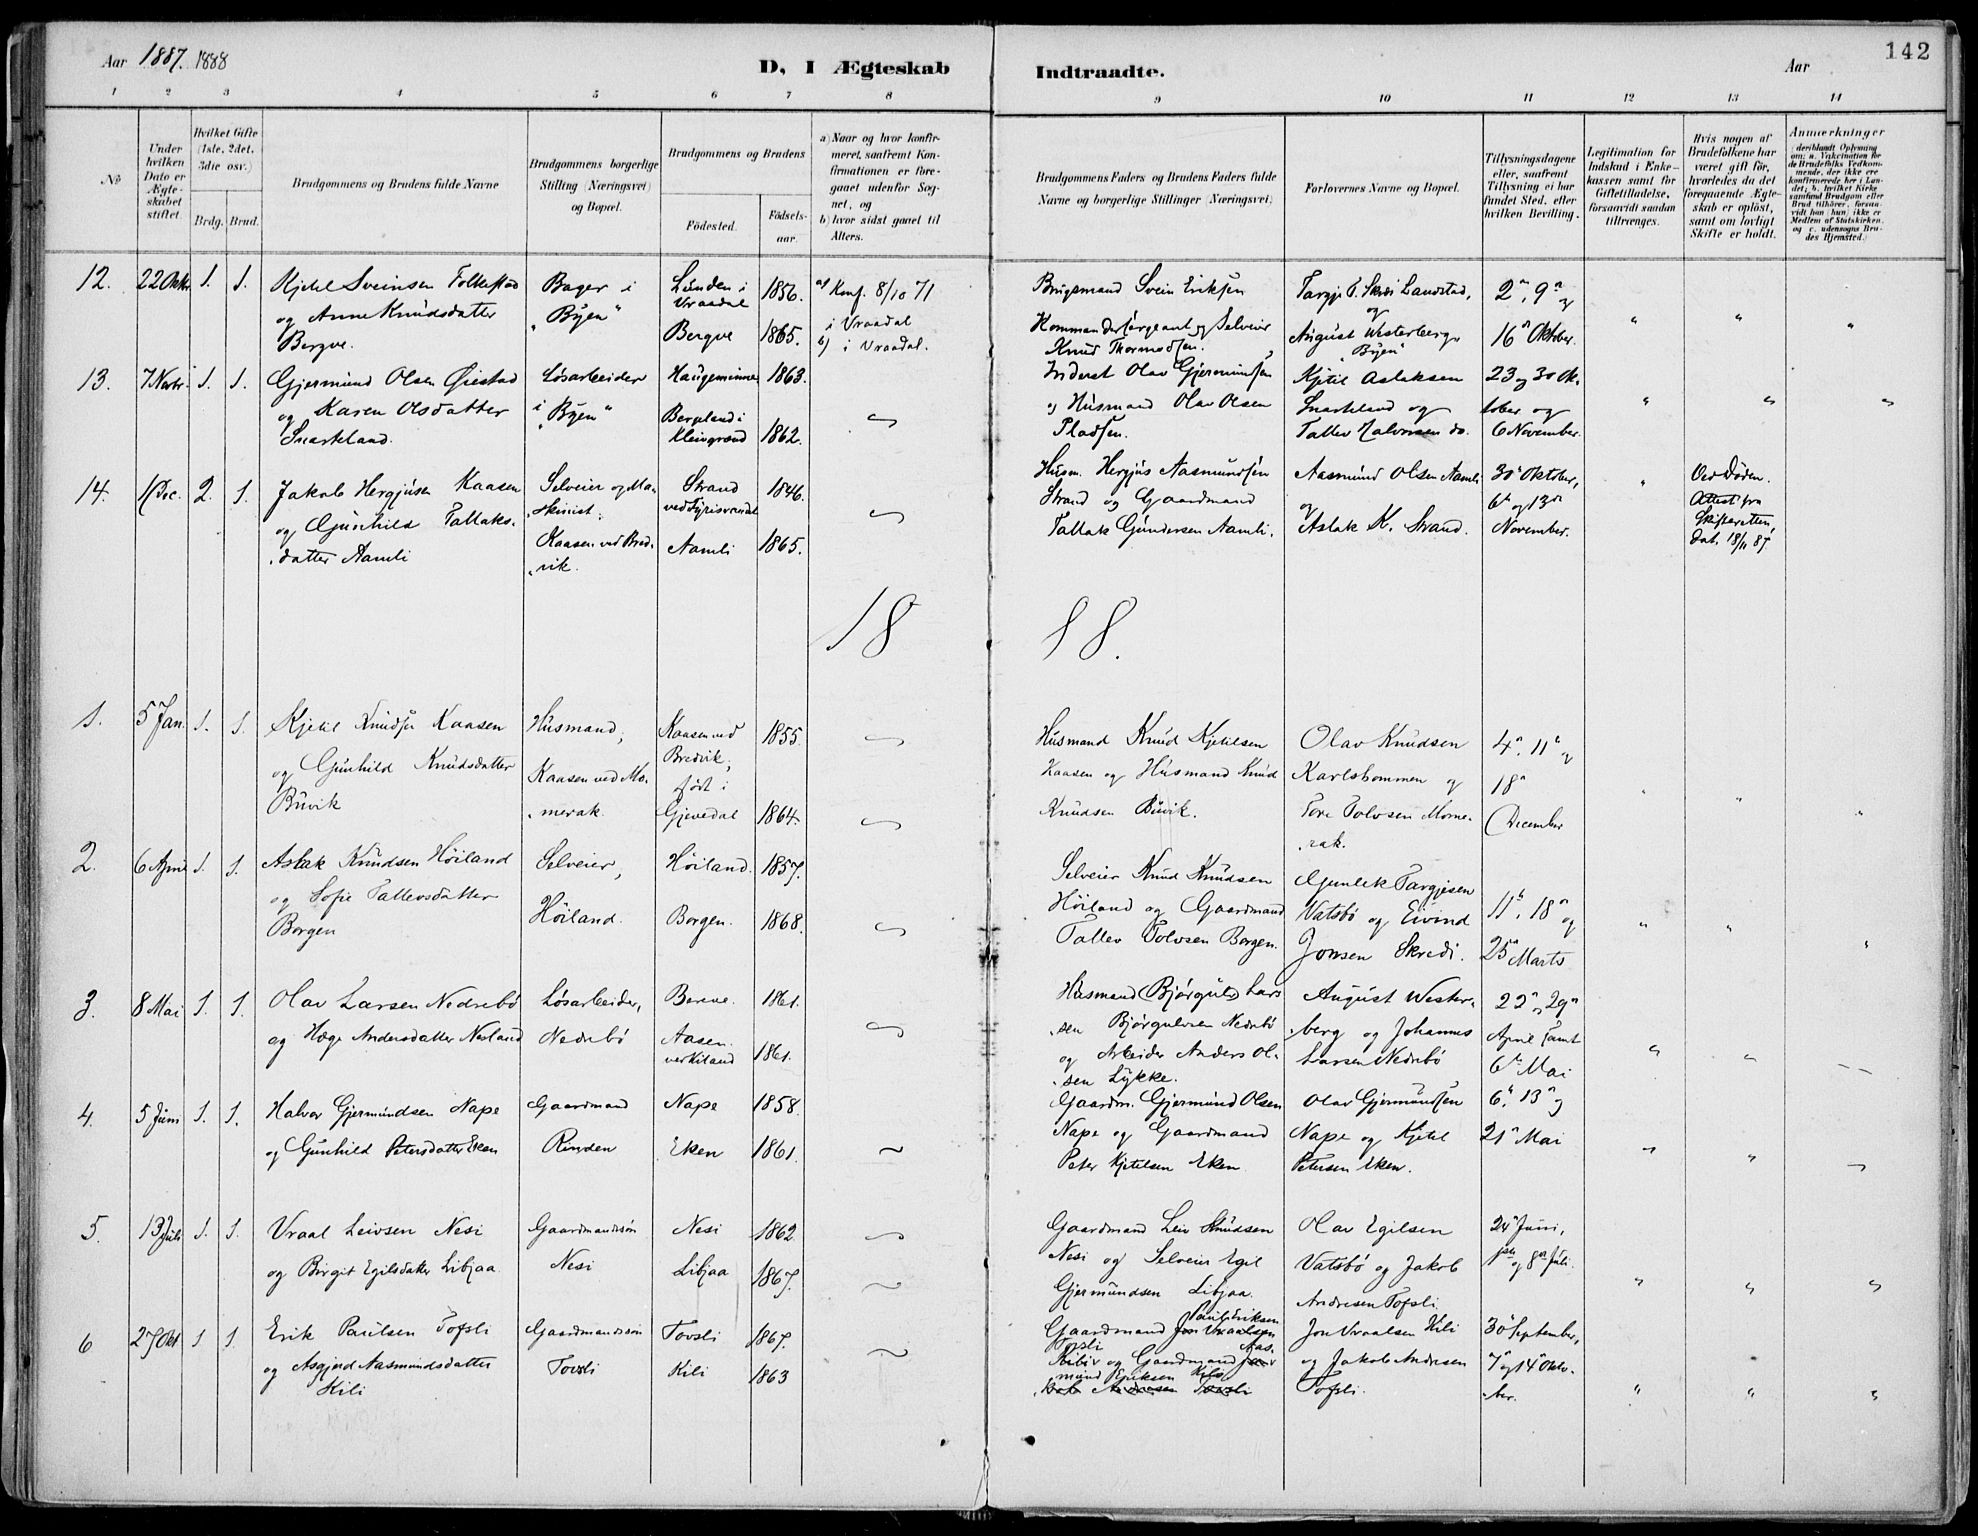 Aar 1887. 1888
D, I Ægteskab
Indtraadte.
Aar
142
1 2 3 4 5 6 7 8
9 10 11 12 13 14
No
Under hvilken Dato er Ægteskabet stiftet.
Hvilket Gifte (1ste, 2det, 3die osv.)
Brdg. Brud.
Brudgommens og Brudens fulde Navne
Brudgommens borgerlige Stilling (Næringsvei) og Bopæl.
Brudgommens og Brudens
Fødested.
Fødsels-aar.
a) Naar og hvor konfirmeret, saafremt Konfirmationen er foregaaet udenfor Sognet, og
b) hvor sidst gaaet til Alters.
Brudgommens Faders og Brudens Faders fulde Navne og borgerlige Stillinger (Næringsvei)
Forlovernes Navne og Bopæl.
Tillysningsdagene eller, saafremt Tillysning ei har fundet Sted, efter hvilken Bevilling.
Legitimation for Indskud i Enkekassen samt for Giftetilladelse, forsaavidt saadan tiltrænges.
Hvis nogen af Brudefolkene har været gift før, hvorledes da det foregaaende Ægteskab er opløst, samt om lovligt Skifte er holdt.
Anmerkninger
12. 22 Oktr. 1. 1.
Kjetel Sveinsen Folkestad
og Anne Knudsdatter
Bergve.
Bager i
"Byen"
Lunden i
Vraadal
Bergve
1856.
1865.
a) Konf. 8/10 71
i Vraadal
b) i Vraadal.
Brugsmand Svein Eriksen
Kommandersergeant og Selveier
Knud Thormodsen.
Targje T. Skredi Landstad,
og
August Westerberg,
"Byen"
2n, 9n og
16n Oktober.
" " "
13. 7 Novbr. 1. 1.
Gjermund Olsen Øiestad
og Karen Olsdatter
Snarkland.
Løsarbeider
i "Byen"
Haugeminne
Bergland i
Kleivgrend
1863.
1862.
Inderst Olav Gjermundsen
og Husmand Olav Olsen
Pladsen.
Kjetil Aslaksen
Snarkland og
Tallev Halvorsen do.
23 og 30 Ok-
tober og
6 November.
" " "
14. 1 Dec. 2. 1.
Jakob Hergjusen Kaasen
og Gunhild Tallaks-
datter Aamli
Selveier og Ma-
skinist.
Kaasen ved Bred-
vik.
Strand
ved Fyrisvandet
Aamli
1846.
1865.
Husm. Hergjus Aasmundsen
Strand og Gaardmand
Tallak Gundersen Aamli.
Aasmund Olsen Aamli
og
Aslak K. Strand.
30 Oktober,
6te og 13de
November.
"
Ved Døden.
Attest fra
Skifteretten,
dat. 18/11 87.
18 88.
1. 5 Jan. 1. 1.
Kjetil Knudsen Kaasen
og Gunhild Knudsdatter
Buvik
Husmand,
Kaasen ved Mo-
merak.
Kaasen ved
Bredvik;
født i
Gjevedal
1855.
1864.
Husmand Knud Kjetilsen
Kaasen og Husmand Knud
Knudsen Buvik.
Olav Knudsen
Karlshommen og
Tore Tolvsen Mome-
rak.
4n, 11te og
18n
December
2. 6 April 1. 1.
Aslak Knudsen Høiland
og Sofie Tallevsdatter
Borgen
Selveier,
Høiland.
Høiland.
Borgen.
1857.
1868.
Selveier Knud Knudsen
Høiland og Gaardmand
Tallev Tolvsen Borgen.
Gunlek Targjesen
Vatsbø og Eivind
Jonsen Skredi.
11te, 18n og
25n Marts
" " "
3. 8 Mai 1. 1.
Olav Larsen Nedrebø
og Hæge Andersdatter Nesland
Løsarbeider,
Nedrebø
Bereve.
Aasen.
1861.
1861.
Husmand (Bjørgulv) Lars
sen Bjørgulvsen Nedrebø
og Arbeider Anders Ol-
sen Lykke.
August Wester-
berg og Johannes
Larsen Nedrebø
22n, 29n
April samt
6te Mai
4. 5 Juni 1. 1.
Halvor Gjermundsen Nape
og Gunhild Petersdatter Eken
Gaardmand
Rinden
Nape
Eken
1858.
1861.
Gaardm. Gjermund Olsen
Nape og Gaardmand
Peter Kjetilsen Eken
Olav Gjermundsen
Nape og Kjetil
Petersen Eken.
6te, 13n og
21n Mai
5. 13 Juli 1. 1.
Vraal Leivsen Nesi
og Birgit Egilsdatter Libjaa
Gaardmandssøn
Nesi
Nesi
Libjaa
1862.
1867.
Gaardmand Leiv Knudsen
Nesi og Selveier Egil
Gjermundsen Libjaa.
Olav Egilsen
Vatsbø og Jakob
Andresen Tofsli.
24n Juni,
1ste og 8de Juli.
" " "
6 27 Okt 1 1.
Erik Paulsen Tofsli
og Asgjerd Aasmundsdatter
Kili
Gaardmandssøn
Tovsli
Tovsli
Kili
1867.
1863
Paul Eriksen
Gaardmand Jon Vraalsen
Tofsli Aas-
Kili og Gaardmand
mund Eriksen Kili
Andresen Tovsli
Jon Vraalsen Kili
og Jakob Andresen
Tofsli.
30n September,
7n og 14n Okto-
ber.
" " "